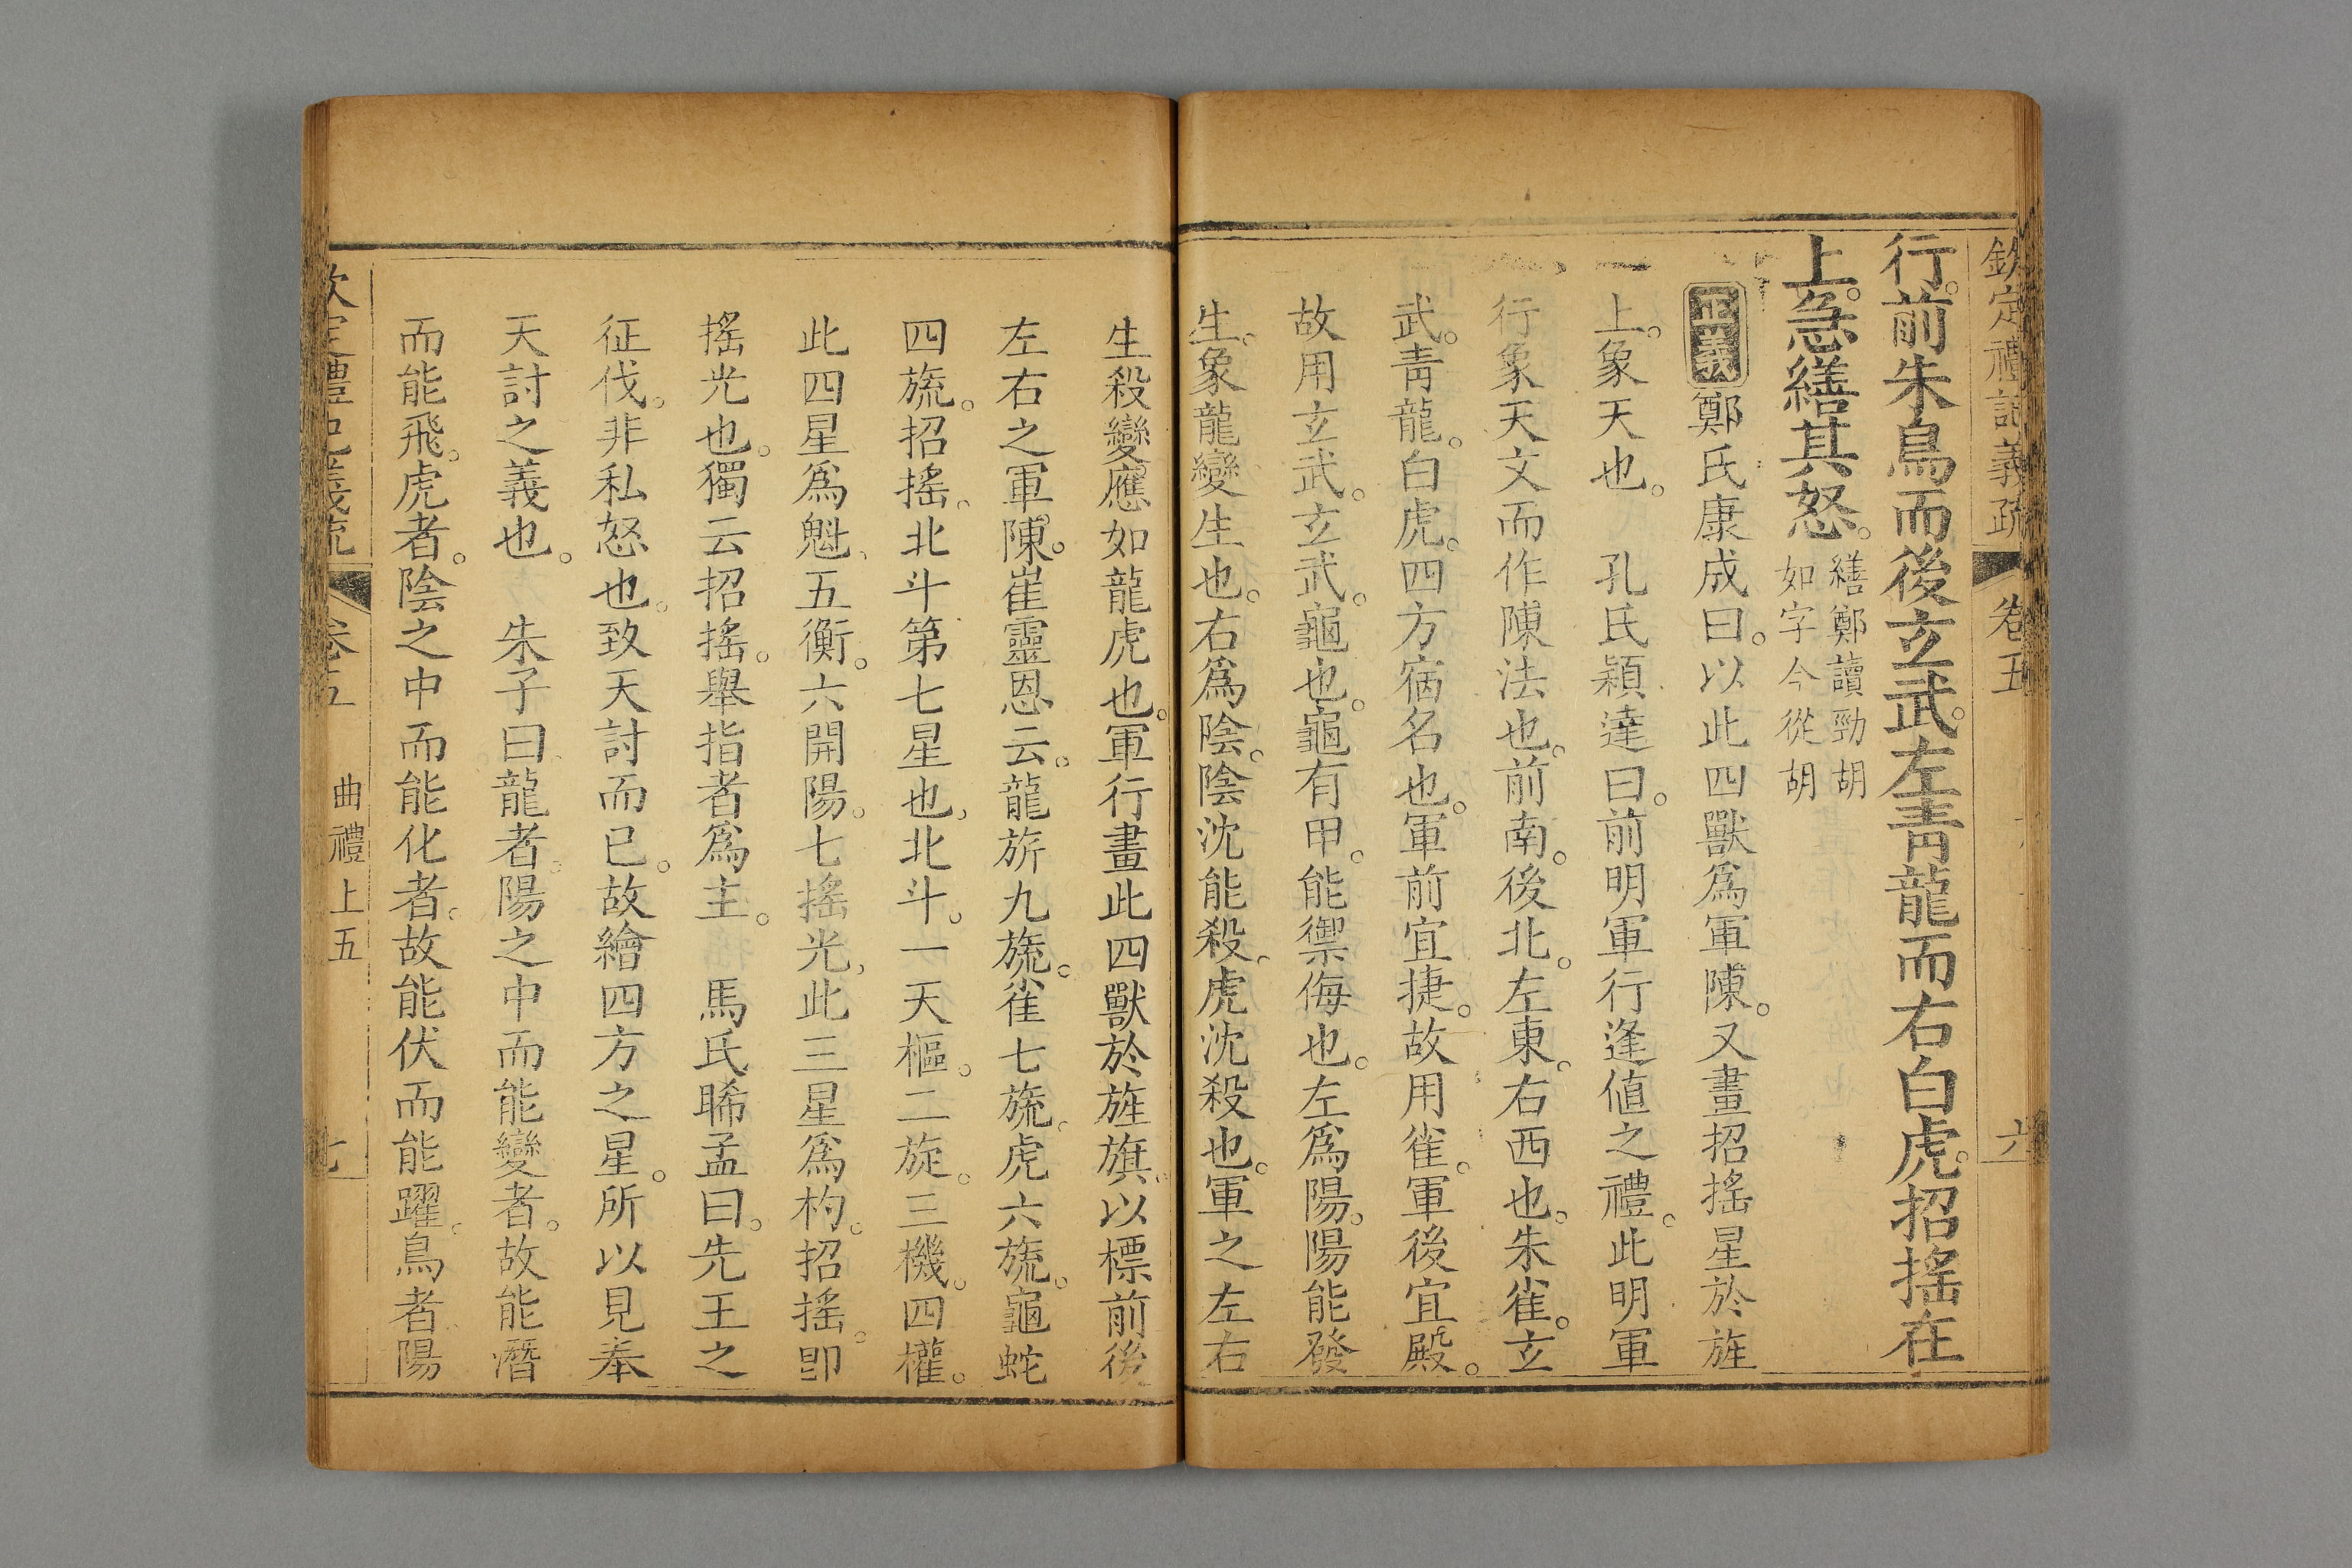 欽定禮記義疏 卷五 六
行。前朱鳥而後玄武。左靑龍而右白虎。招搖在
上。急繕其怒。
繕鄭讀勁胡
如字今從胡
正義鄭氏康成曰。以此四獸爲軍陳。又畫招搖星於旌
上。象天也。 孔氏穎達曰。前明軍行逢値之禮。此明軍
行象天文而作陳法也。前南。後北。左東。右西也。朱雀。玄
武。靑龍。白虎。四方宿名也。軍前宜捷。故用雀。軍後宜殿。
故用玄武。玄武。龜也。龜有甲。能禦侮也。左爲陽。陽能發
生。象龍變生也。右爲陰。陰沈能殺。虎沈殺也。軍之左右
生殺變應如龍虎也。軍行畫此四獸於旌旗。以標前後
左右之軍陳。崔靈恩云。龍旂九旒。雀七旒。虎六旒。龜蛇
四旒。招搖。北斗第七星也，北斗。一天樞。二旋。三機。四權。
此四星爲魁、五衡。六開陽。七搖光，此三星爲杓。招搖。卽
搖光也。獨云招搖。舉指者爲主。 馬氏晞孟曰。先王之
征伐。非私怒也。致天討而已。故繪四方之星。所以見奉
天討之義也。 朱子曰、龍者。陽之中而能變者。故能潛
而能飛。虎者。陰之中而能化者。故能伏而能躍。鳥者陽
欽定禮記義疏 卷五 曲禮上五 七